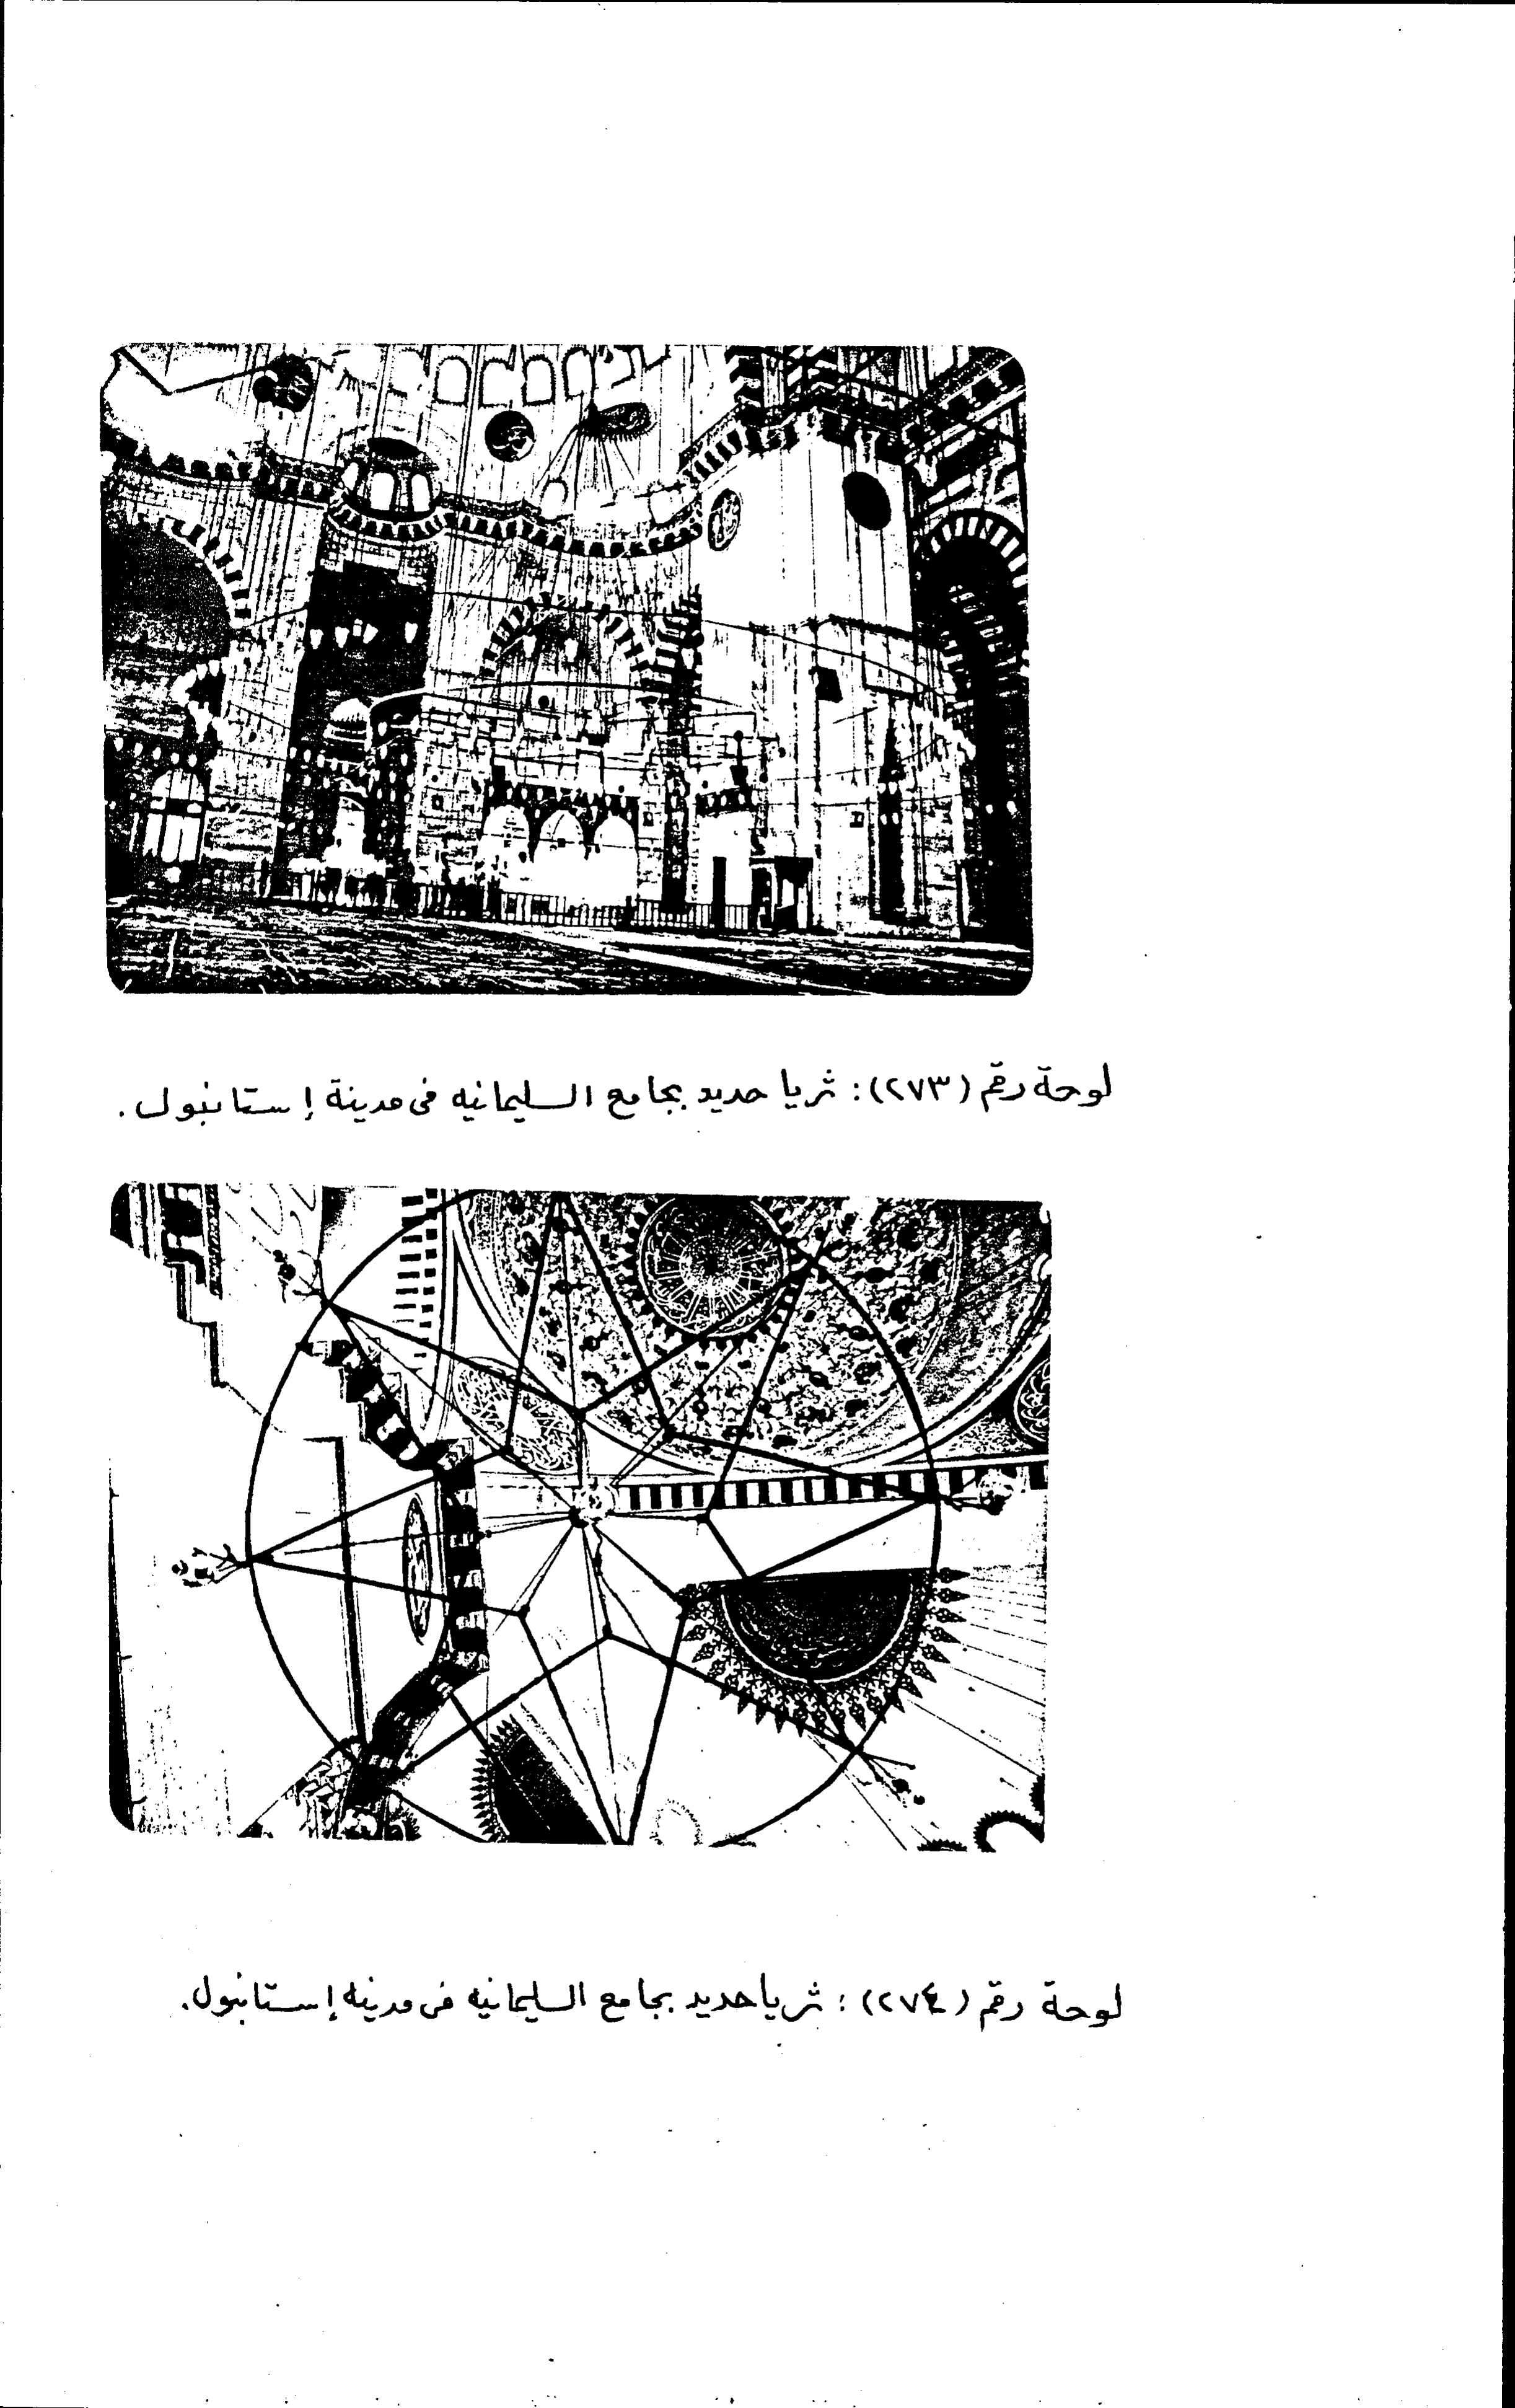 لوحة رقم (٢٧٣): ثريا حديد بجامع السليمانيه فى مدينة إستانبول.
لوحة رقم (٢٧٤): ثريا حديد بجامع السليمانيه فى مدينه إستانبول.